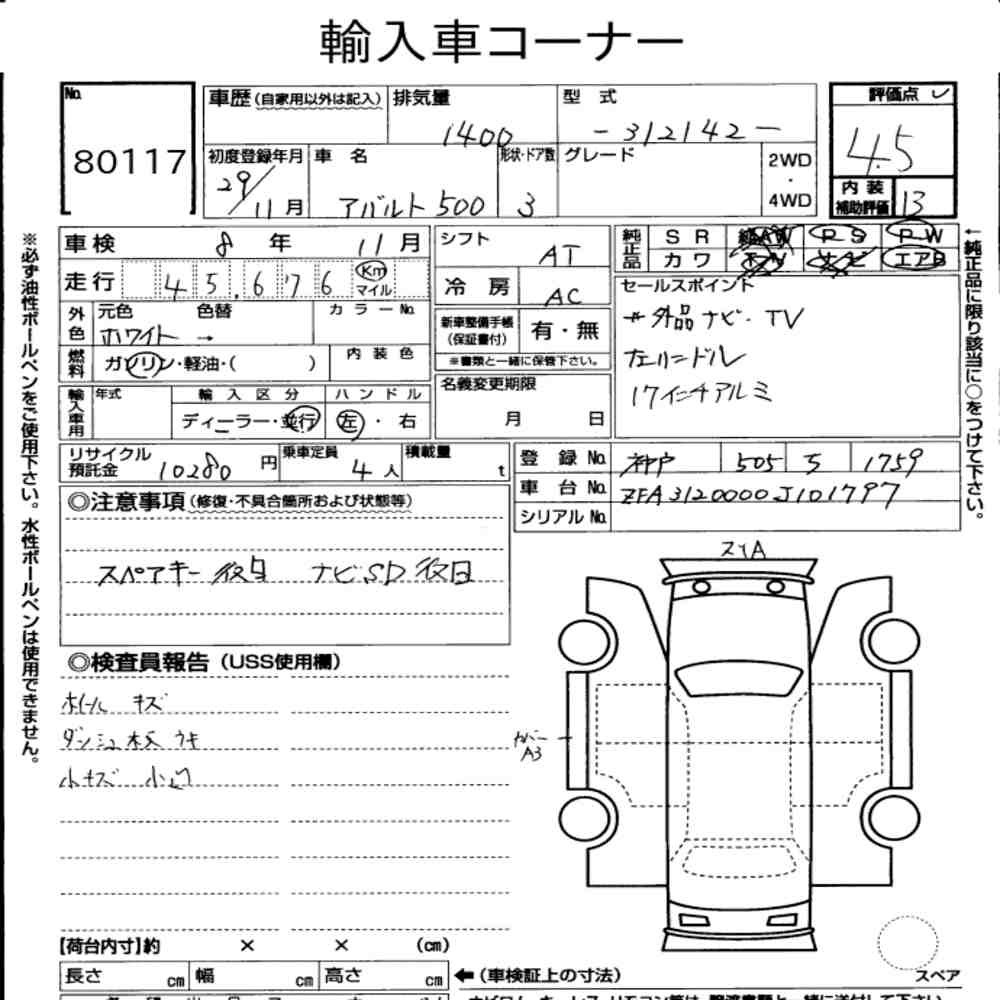 輸入車コーナー
No.
80117
車歴(自家用以外は記入)
排気量
1400
型 式
-312142-
評価点
4.5
初度登録年月
29/11月
車 名
アバルト500
形状・ドア数
3
グレード
2WD
・
4WD
内装
補助評価
13
車検 8年 11月
シフト
AT
純正品
SR PS PW
カワ エアB
走行 45,676 Km
マイル
冷房
AC
セールスポイント
*外品ナビ・TV
左ハンドル
17インチアルミ
外色
元色 色替 カラーNo.
ホワイト →
新車整備手帳
(保証書付)
有・無
※書類と一緒に保管下さい。
燃料
ガソリン・軽油・( )
内装色
名義変更期限
月 日
輸入車用
年式
輸入区分
ディーラー・並行
ハンドル
左・右
リサイクル
預託金
10280円
乗車定員
4人
積載量
t
登録No. 神戸 505 ラ 1759
車台No. ZFA3120000J101797
シリアルNo.
◎注意事項(修復・不具合箇所および状態等)
スペアキー後日 ナビSD後日
◎検査員報告(USS使用欄)
ホイール キズ
ダッシュ板 ウキ
小キズ 小凹
スイA
カバー
A3
【荷台内寸】約 × × (cm)
長さ cm 幅 cm 高さ cm
←(車検証上の寸法)
スペア
※必ず油性ボールペンをご使用下さい。水性ボールペンは使用できません。
←純正品に限り該当に○をつけて下さい。